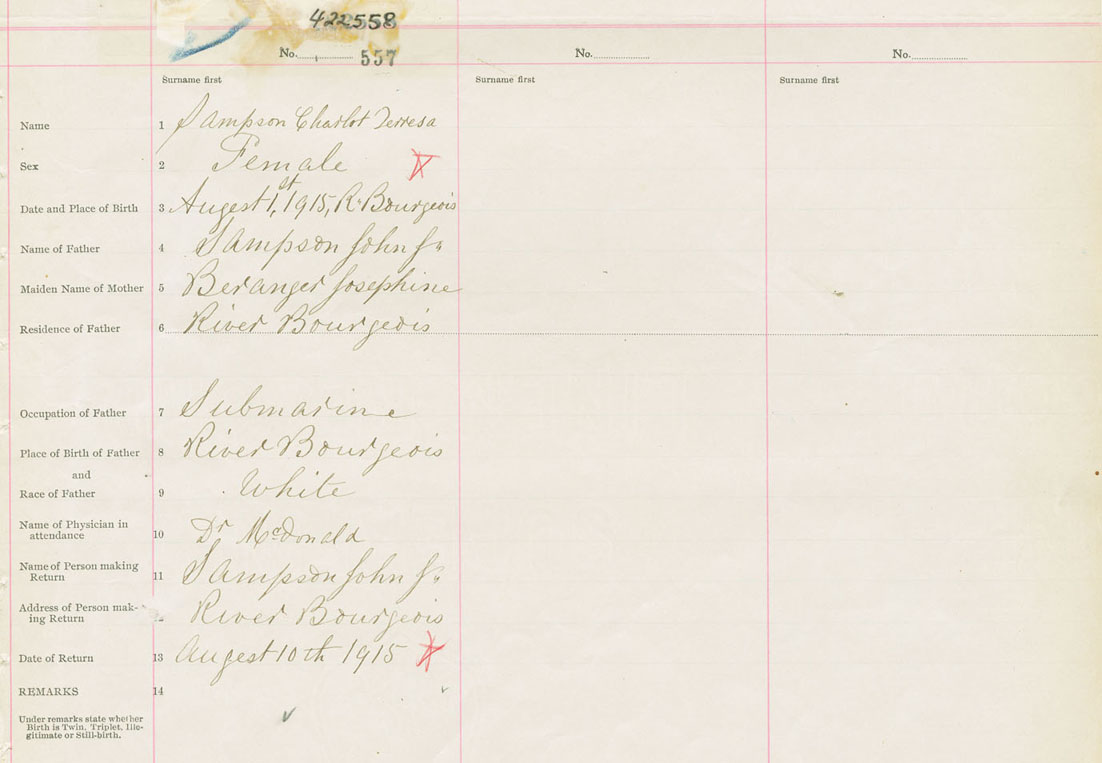 422558
No. 557 No. No.
Surname first Surname first Surname first
Name 1 Sampson Charlot Terresa
Sex 2 Female
Date and Place of Birth 3 Augest 1st, 1915, R. Bourgeois
Name of Father 4 Sampson John J"
Maiden Name of Mother 5 Beranger Josephine
Residence of Father 6 River Bourgeois
Occupation of Father 7 Submarine
Place of Birth of Father 8 River Bourgeois
and
Race of Father 9 White
Name of Physician in
attendance 10 Dr McDonald
Name of Person making
Return 11 Sampson John J"
Address of Person mak-
ing Return River Bourgeois
Date of Return 13 Augest 10th 1915
REMARKS 14
Under remarks state whether
Birth is Twin, Triplet, Ille-
gitimate or Still-birth.